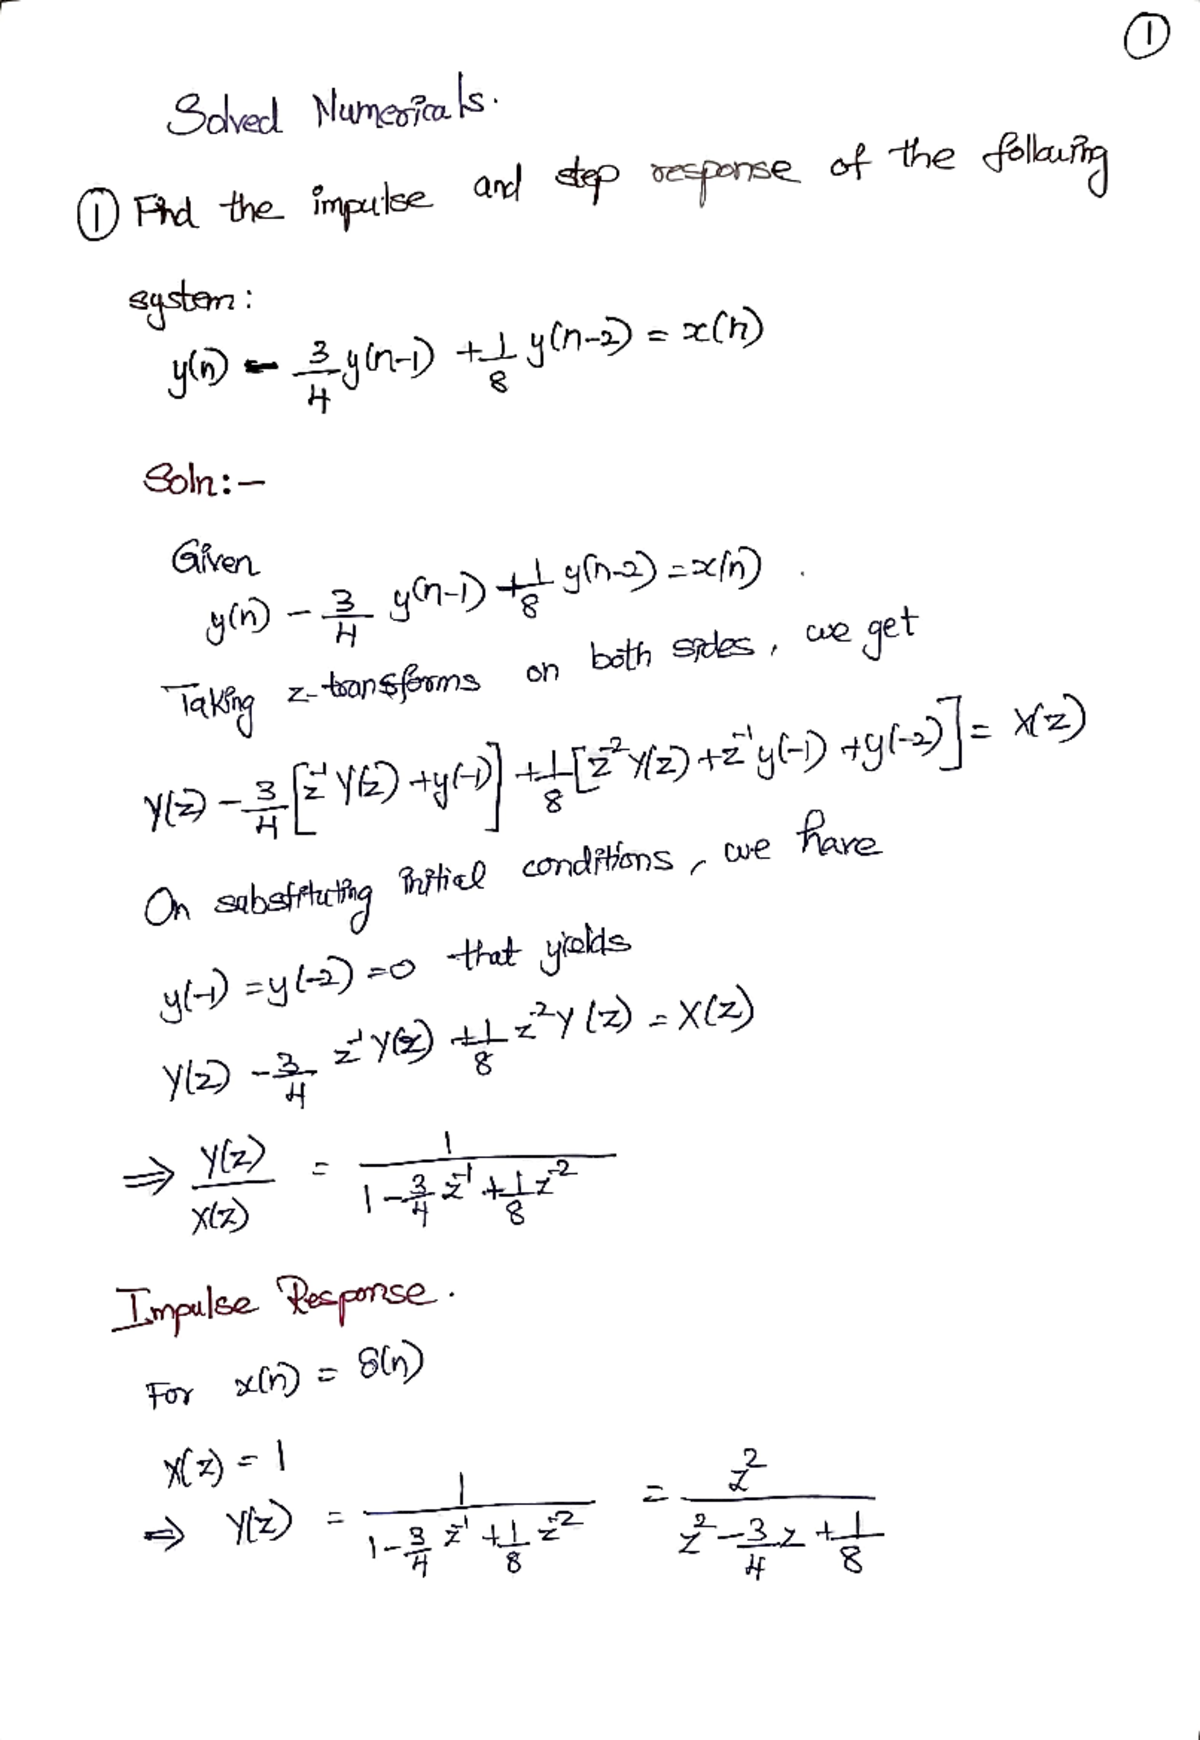 ①
Solved Numericals.
① Find the impulse and step response of the following
system:
y(n) - 3/4 y(n-1) + 1/8 y(n-2) = x(n)
Soln:-
Given
y(n) - 3/4 y(n-1) + 1/8 y(n-2) = x(n).
Taking z-transforms on both sides, we get
Y(z) - 3/4 [z⁻¹ Y(z) + y(-1)] + 1/8 [z⁻² Y(z) + z⁻¹ y(-1) + y(-2)] = X(z)
On substituting initial conditions, we have
y(-1) = y(-2) = 0 that yields
Y(z) - 3/4 z⁻¹ Y(z) + 1/8 z⁻² Y(z) = X(z)
⇒ Y(z)/X(z) = 1/(1 - 3/4 z⁻¹ + 1/8 z⁻²)
Impulse Response.
For x(n) = δ(n)
X(z) = 1
⇒ Y(z) = 1/(1 - 3/4 z⁻¹ + 1/8 z⁻²) = z²/(z² - 3/4 z + 1/8)